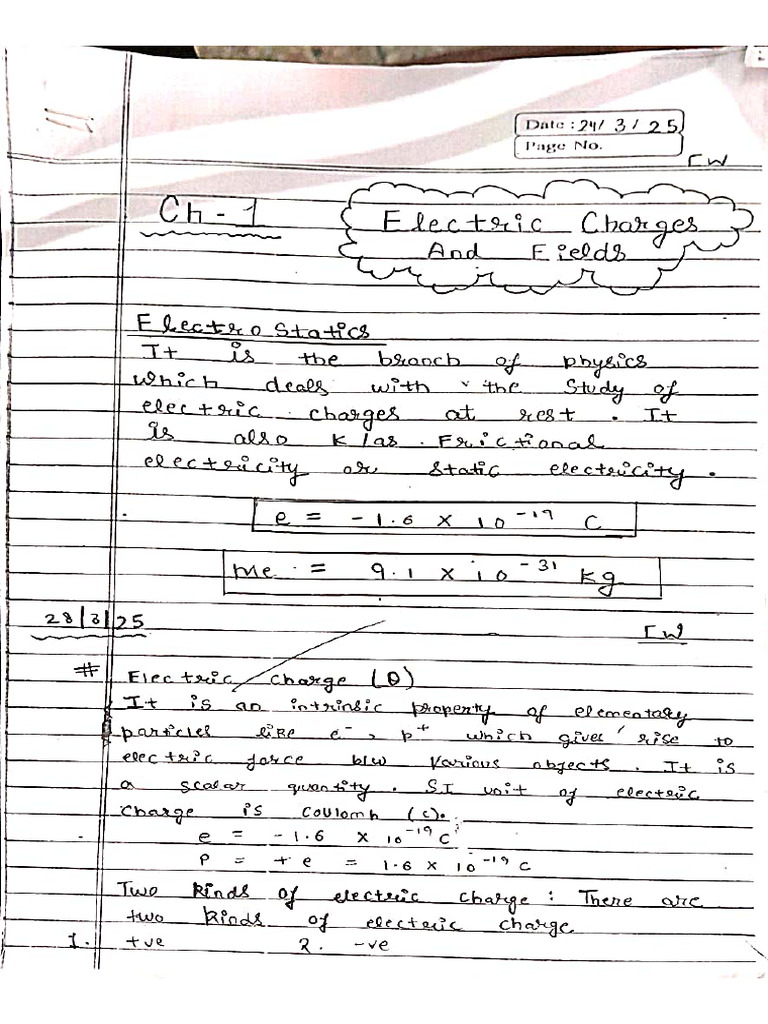 Date : 24/3/25
Page No.
CW
Ch-1
Electric Charges
And Fields
Electrostatics
It is the branch of physics
which deals with the study of
electric charges at rest. It
is also K/as Frictional
electricity or static electricity.
e = -1.6 x 10⁻¹⁹ C
me = 9.1 x 10⁻³¹ kg
28/3/25
CW
# Electric charge (Q)
It is an intrinsic property of elementary
particles like e⁻, p⁺ which gives rise to
electric force b/w various objects. It is
a scalar quantity. SI unit of electric
charge is coulomb (c).
e = -1.6 x 10⁻¹⁹ C
P = +e = 1.6 x 10⁻¹⁹ C
Two kinds of electric charge : There are
two kinds of electric charge
1. +ve 2. -ve